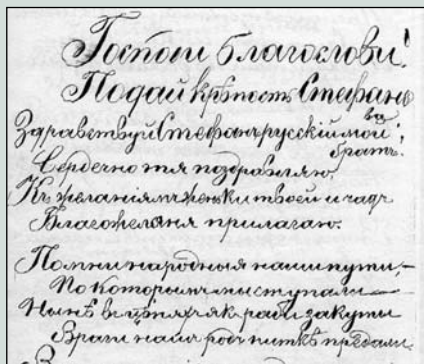 Господи благослови!
Подай крѣпость Стефанъ
Здравствуй Стефанъ русскій мой
братъ!
Сердечно тя поздравляю,
Къ желаніямъ женки твоей и чадъ
Благожеланя прилагаю.
Помни народныя наши пути,—
По которымъ мы ступали—
Нынѣ въ цѣпяхъ як ради закути
Враги насъ предали.